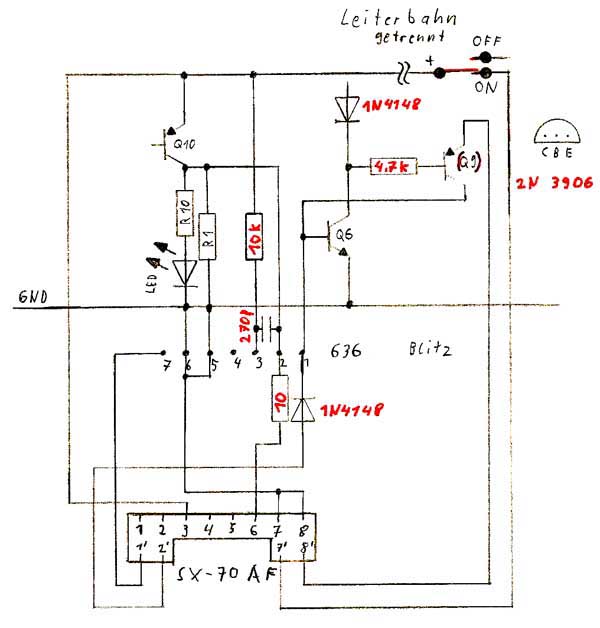 Leiterbahn
getrennt
OFF
+
ON
1N4148
Q10
C B E
4.7k
(Q9)
2N 3906
R10
R1
10k
Q6
LED
GND
270p
7 6 5 4 3 2 1 636 Blitz
10
1N4148
1 2 3 4 5 6 7 8
1' 2' 7' 8'
SX-70 AF